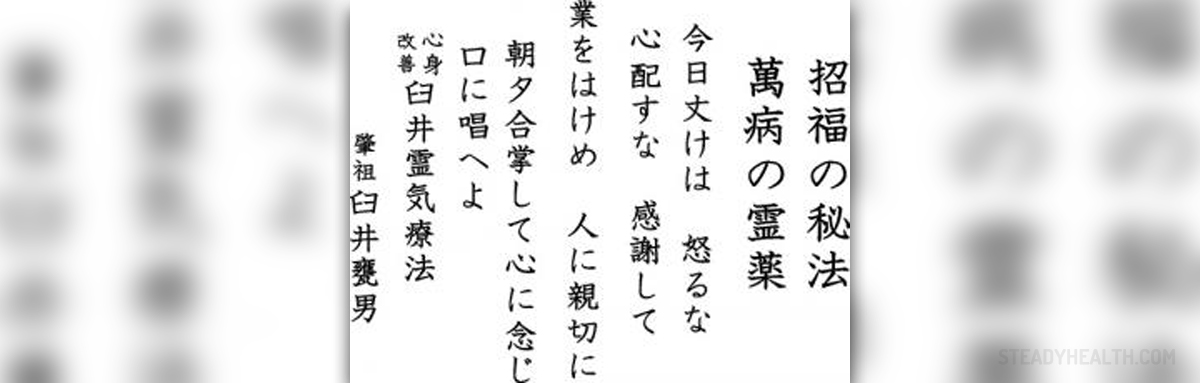 招福の秘法
萬病の霊薬
今日丈けは 怒るな
心配すな 感謝して
業をはけめ 人に親切に
朝夕合掌して心に念じ
口に唱へよ
心身
改善
臼井霊気療法
肇祖
臼井甕男
STEADYHEALTH.COM